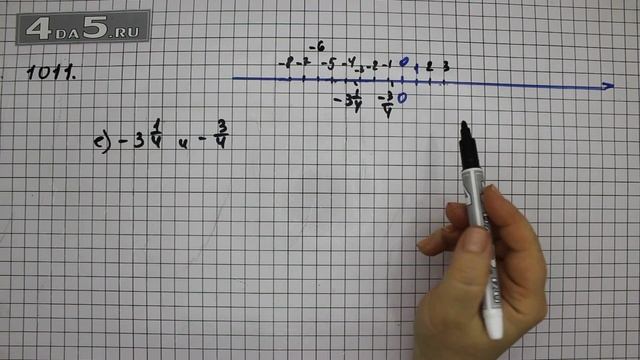 4DA5.RU
-6
-8 -7 -5 -4 -3 -2 -1 0 1 2 3
1011.
-3 1/4 -3/4 0
е) -3 1/4 и -3/4